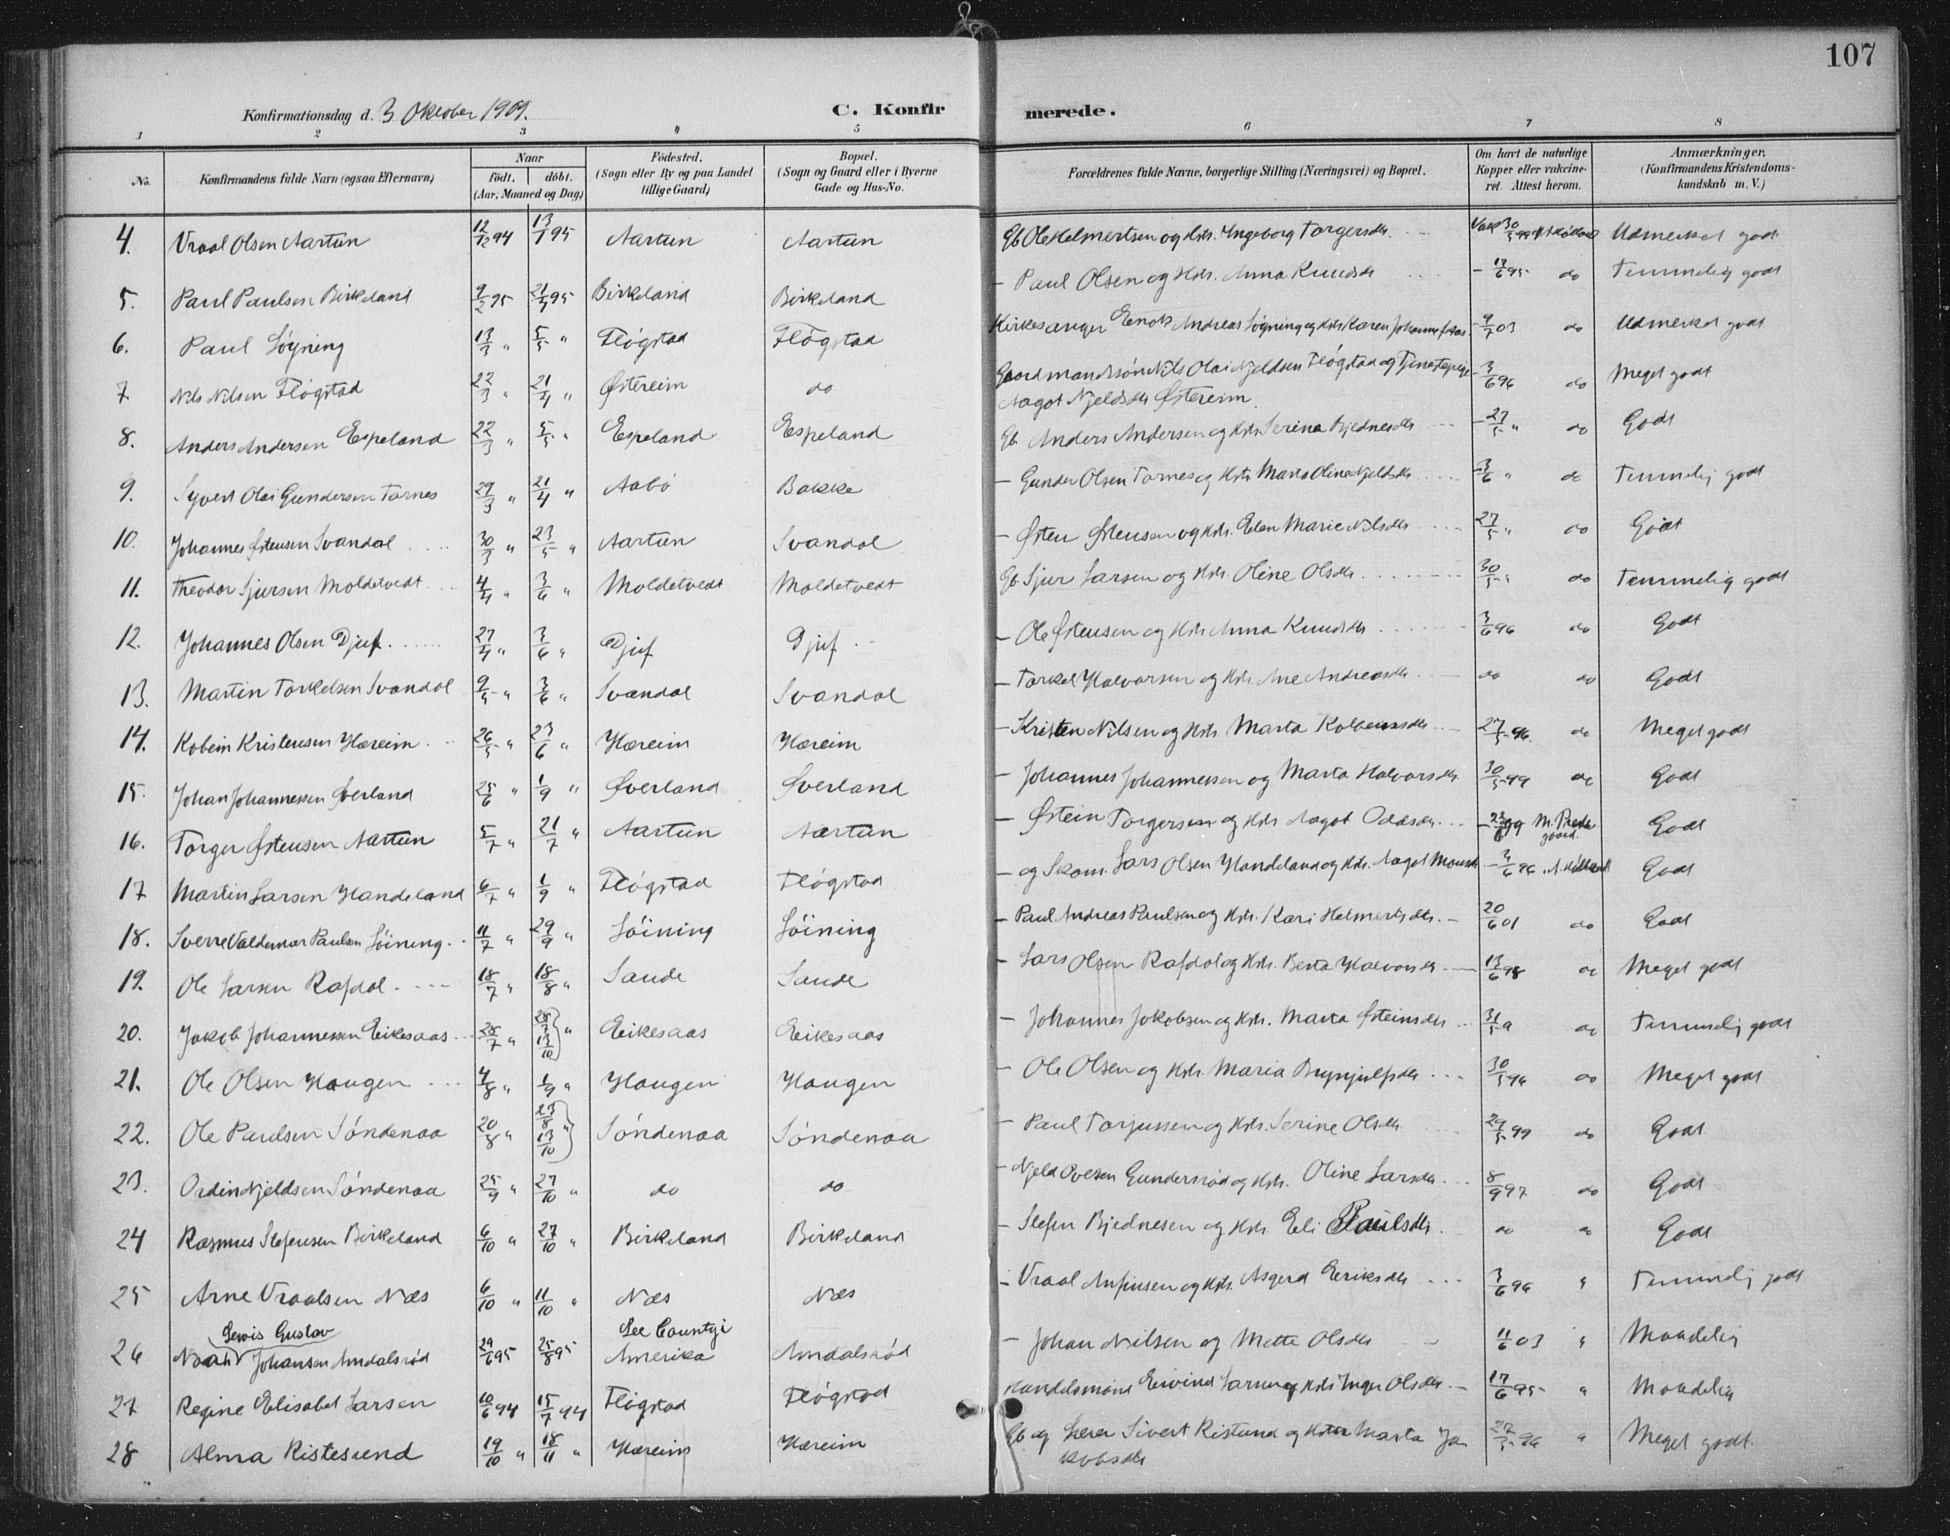 107
Konfirmationsdag d. 3 Oktober 1909.
C. Konfirmerede.
1 2 3 4 5 6 7 8
No. Konfirmandens fulde Navn (ogsaa Efternavn) Naar Født. døbt. (Aar, Maaned og Dag) Fødested. (Sogn eller By og paa Landet tillige Gaard) Bopæl. (Sogn og Gaard eller i Byerne Gade og Hus-No. Forældrenes fulde Navne, borgerlige Stilling (Næringsvei) og Bopæl. Om havt de naturlige Kopper eller vakcineret. Attest herom. Anmærkninger. (Konfirmandens Kristendomskundskab m. V.)
4. Vraal Olsen Aartun 12/12 94 13/1 95 Aartun Aartun Gb Ole Helmertsen og Hst. Ingeborg Torgersdtr. Udmerket godt
5. Paul Paulsen Birkeland 9/2 95 21/4 95 Birkeland Birkeland – Paul Olsen og Hst. Anna Knudsdtr – 13/6 95 do Temmelig godt
6. Paul Søyning 13/3 " 5/5 " Fløgstad Fløgstad Kirkesanger Enok Andreas Søyning og Hst. Karen 9/7 03 do Udmerket godt
7 Nils Nilsen Fløgstad 22/3 " 21/4 " Østereim do Gaardmandssøn Nils Olai Njeldsen Fløgstad og Tjenestepige Aagot Njeldsdtr Østereim. 3/6 96 do Meget godt
8. Anders Andersen Espeland 22/3 " 5/5 " Espeland Espeland Gb Anders Andersen og Hst. Serina Bjednesdtr – 27/5 " do Godt
9. Syvert Olai Gundersen Tornes 29/3 " 21/4 " Aabø Bakke – Gunder Olsen Tornes og Hst. Marta Olina Njeldsdtr 3/6 " do Temmelig godt
10. Johannes Østensen Svandal 30/3 " 23/5 " Aartun Svandal – Østen Østensen og Hst. Elen Marie Nilsdtr 27/5 " do Godt
11. Theodor Sjursen Moldetvedt 4/4 " 3/6 " Moldetvedt Moldetvedt Gb Sjur Larsen og Hst. Oline Olsdtr. 30/5 " do Temmelig godt
12. Johannes Olsen Djuf. 27/4 " 3/6 " Djuf Djuf – Ole Østensen og Hst. Anna Knudsdtr 3/6 96 do Godt
13. Martin Torkelsen Svandal 9/5 " 3/6 " Svandal Svandal – Torkel Halvorsen og Hst. Ane Andreasdtr do do Godt
14. Kobein Kristensen Hæreim 26/5 " 23/6 " Hæreim Hæreim – Kristen Nilsen og Hst. Marta Kolbeinsdtr 27/5 96. do Meget godt
15. Johan Johannessen Øverland 25/6 " 1/9 " Øverland Øverland – Johannes Johannessen og Marta Halvorsdtr 30/5 99 do Godt
16. Torger Østensen Aartun 5/7 " 21/7 " Aartun Aartun – Østein Torgersen og Hst Aagot Oddsdtr. Godt
17 Martin Larsen Handeland 6/7 " 1/9 " Fløgstad Fløgstad – og Skom. Lars Olsen Handeland og Hst. Aagot – 3/6 96 Godt
18. Sverre Valdemar Paulsen Søining 11/7 " 29/9 " Søining Søining – Paul Andreas Paulsen og Hst. Kari Helmertsdtr. – 20/6 01 do Godt
19. Ole Larsen Rafdal 18/7 " 18/8 " Sande Sande – Lars Olsen Rafdal og Hst. Berta Halvorsdtr 13/6 98 do Meget godt
20. Jakob Johannessen Eikesaas 28/7 " 28/7 13/10 " Eikesaas Eikesaas – Johannes Jakobsen og Hst. Marta Østeinsdtr do Temmelig godt
21. Ole Olsen Haugen 4/8 " 1/9 " Haugen Haugen – Ole Olsen og Hst. Maria Brynjulfsdtr 30/5 96 do Meget godt
22. Ole Paulsen Søndenaa 20/8 " 23/8 13/10 " Søndenaa Søndenaa – Paul Torjussen og Hst. Serine Olsdtr 29/5 99 do Godt
23. Ordin Njeldsen Søndenaa 25/9 " 27/10 " do do – Njeld Ovesen Gundersrød og Hst. Oline Larsdtr. 8/9 97 do Godt
24 Rasmus Stefensen Birkeland 6/10 " 27/10 " Birkeland Birkeland – Stefen Bjednesen og Hst. Eli Paulsdtr. do do Godt
25 Arne Vraalsen Næs 6/10 " 11/10 " Næs Næs – Vraal Anfinsen og Hst. Asgerd Eriksdtr 3/6 96 " Temmelig godt
26 Lewis Gustav Johansen Amdalsrød 29/6 95 25/8 95 Lee County i Amerika Amdalsrød – Johan Nilsen og Mette Olsdtr – 11/6 03 " Maadelig
27 Regine Elisabet Larsen 10/6 94 15/7 94 Fløgstad Fløgstad Handelsmand Eivind Larsen og Hst Inger Olsdtr. – 17/6 95 " Maadelig
28 Alma Ristesund 19/10 " 18/11 " Hæreim Hæreim Gb og Lærer Sivert Ristesund og Hst Marta Jakobsdtr 27/5 96 " Meget godt.